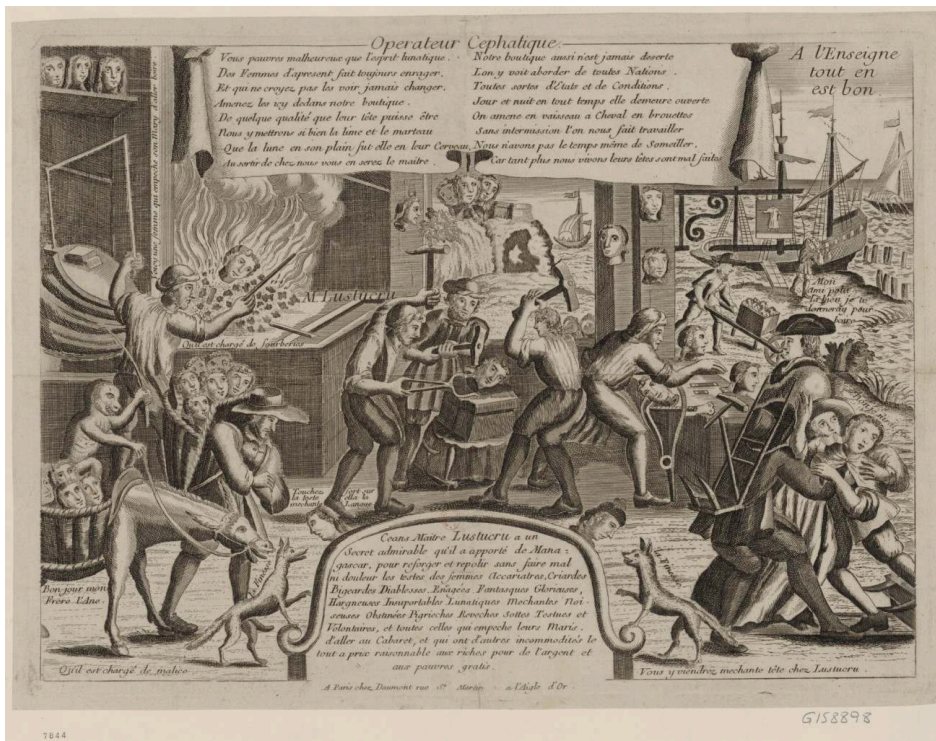 Operateur Cephalique.
Vous pauvres malheureux que l'esprit lunatique.
Des Femmes d'apresent fait toujours enrager,
Et qui ne croyez pas les voir jamais changer,
Amenez les icy dedans notre boutique.
De quelque qualité que leur tête puisse être
Nous y mettrons si bien la lime et le marteau
Que la lune en son plain fut elle en leur Cerveau,
Au sortir de chez nous vous en serez le maitre.
Notre boutique aussi n'est jamais deserte
Lon y voit aborder de toutes Nations.
Toutes sortes d'Etats et de Conditions.
Jour et nuit en tout temps elle demeure ouverte
On amene en vaisseau a Cheval en brouettes
Sans intermission l'on nous fait travailler
Nous n'avons pas le temps même de Someiller.
Car tant plus nous vivons leurs têtes sont mal faites
A l'Enseigne
tout en
est bon
femme qui empeche son Mary d'aller boire.
M. Lustucru
Qu'il est chargé de fourberies
Mon
ami
je te
donneray pour
boire
Touchez
la teste
mechante
sort sur
elle la
Bon jour mon
Frere l'Ane.
Qu'il est chargé de malice
Ceans Maître Lustucru a un
Secret admirable qu'il a apporté de Mana=
gascar, pour reforger et repolir sans faire mal
ni douleur les testes des femmes Accariatres, Criardes
Bigeardes Diablesses, Enagées Fantasques Glorieuses,
Hargneuses Insuportables Lunatiques Mechantes Noi-
seuses Obstinées Pigrieches Reveches Sottes Testues et
Volontaires, et toutes celles qui empeche leurs Maris,
d'aller au Cabaret, et qui ont d'autres incommodités le
tout a prix raisonnable aux riches pour de l'argent et
aux pauvres gratis.
Vous y viendrez mechante tête chez Lustucru.
A Paris chez Daumont rue St. Martin a l'Aigle d'Or.
G158898
7844